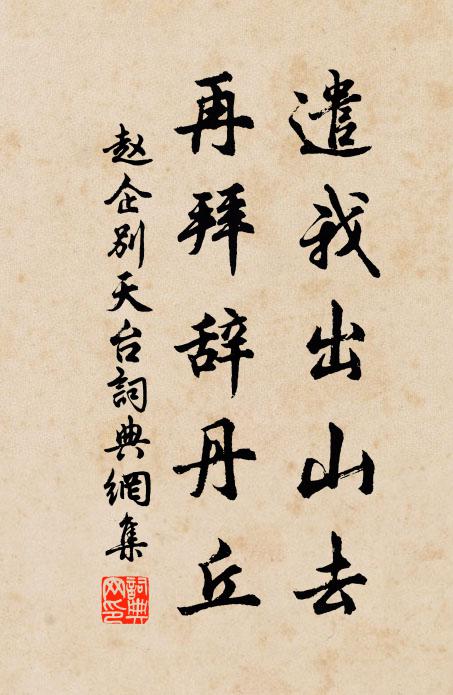 遣我出山去
再拜辞丹丘
赵企别天台詞典網集
詞典
网印